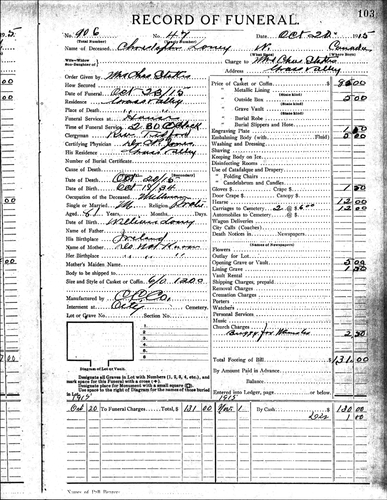 103
RECORD OF FUNERAL.
No. 906 No. 47 Date, Oct 20 15
(Total Number) (Yearly Number)
Name of Deceased Christopher W. Canada
Charge to Mrs Chas
Address Grass Valley
Order Given by Mrs Chas
How Secured
Date of Funeral Oct 23/15
Residence Grass Valley
Place of Death
Funeral Services at
Time of Funeral Service 2:30 O'clock
Clergyman Rev.
Certifying Physician Dr. Jones
His Residence Grass Valley
Number of Burial Certificate
Cause of Death
Date of Death Oct 20/15
Date of Birth Oct 18/34
Occupation of the Deceased
Single or Married M.
Aged 81 Years, Months, Days
Name of Father William
His Birthplace Ireland
Name of Mother Do Not Know
Her Birthplace
Mother's Maiden Name
Body to be shipped to
Size and Style of Casket or Coffin, 6/0 1200
Manufactured by C.P. Co.
Interment at City Cemetery.
Lot or Grave No. Section No.
Diagram of Lot or Vault.
Designate all Graves in Lot with Numbers (1, 2, 3, 4, etc.), and mark space for this Funeral with a cross (+).
Designate place for Monument with a small square
Use the right of Diagram for names of those buried in Lot.
Price of Casket or Coffin $ 85 00
" Metallic Lining
" Outside Box 5 00
" Grave Vault
" Burial Robe
" Burial Slippers and Hose
Engraving Plate
Embalming Body (with Fluid)
Washing and Dressing
Shaving
Keeping Body on Ice
Disinfecting Rooms
Use of Catafalque and Drapery
" Folding Chairs
" Candelabrum and Candles
Gloves $ Crape $
Door Crape $ Canopy $
Hearse 12 00
Carriages to Cemetery 2 @ $6 00 12 00
Automobiles to Cemetery @ $
Wagon Deliveries
City Calls (Coaches)
Death Notices in Newspapers
(Names of Newspapers)
Flowers
Outlay for Lot
Opening Grave or Vault 5 00
Lining Grave 1 50
Vault Rental
Shipping Charges, prepaid
Removal Charges
Cremation Charges
Porters
Watchers
Personal Services
Music
Church Charges
Buggy for Minister 2 50
Total Footing of Bill $ 131 00
By Amount Paid in Advance
Balance
Entered into Ledger, page or below.
1915 1915
Oct 20 To Funeral Charges Total, $ 131 00 Nov 1 By Cash 130 00
Dis 1 00